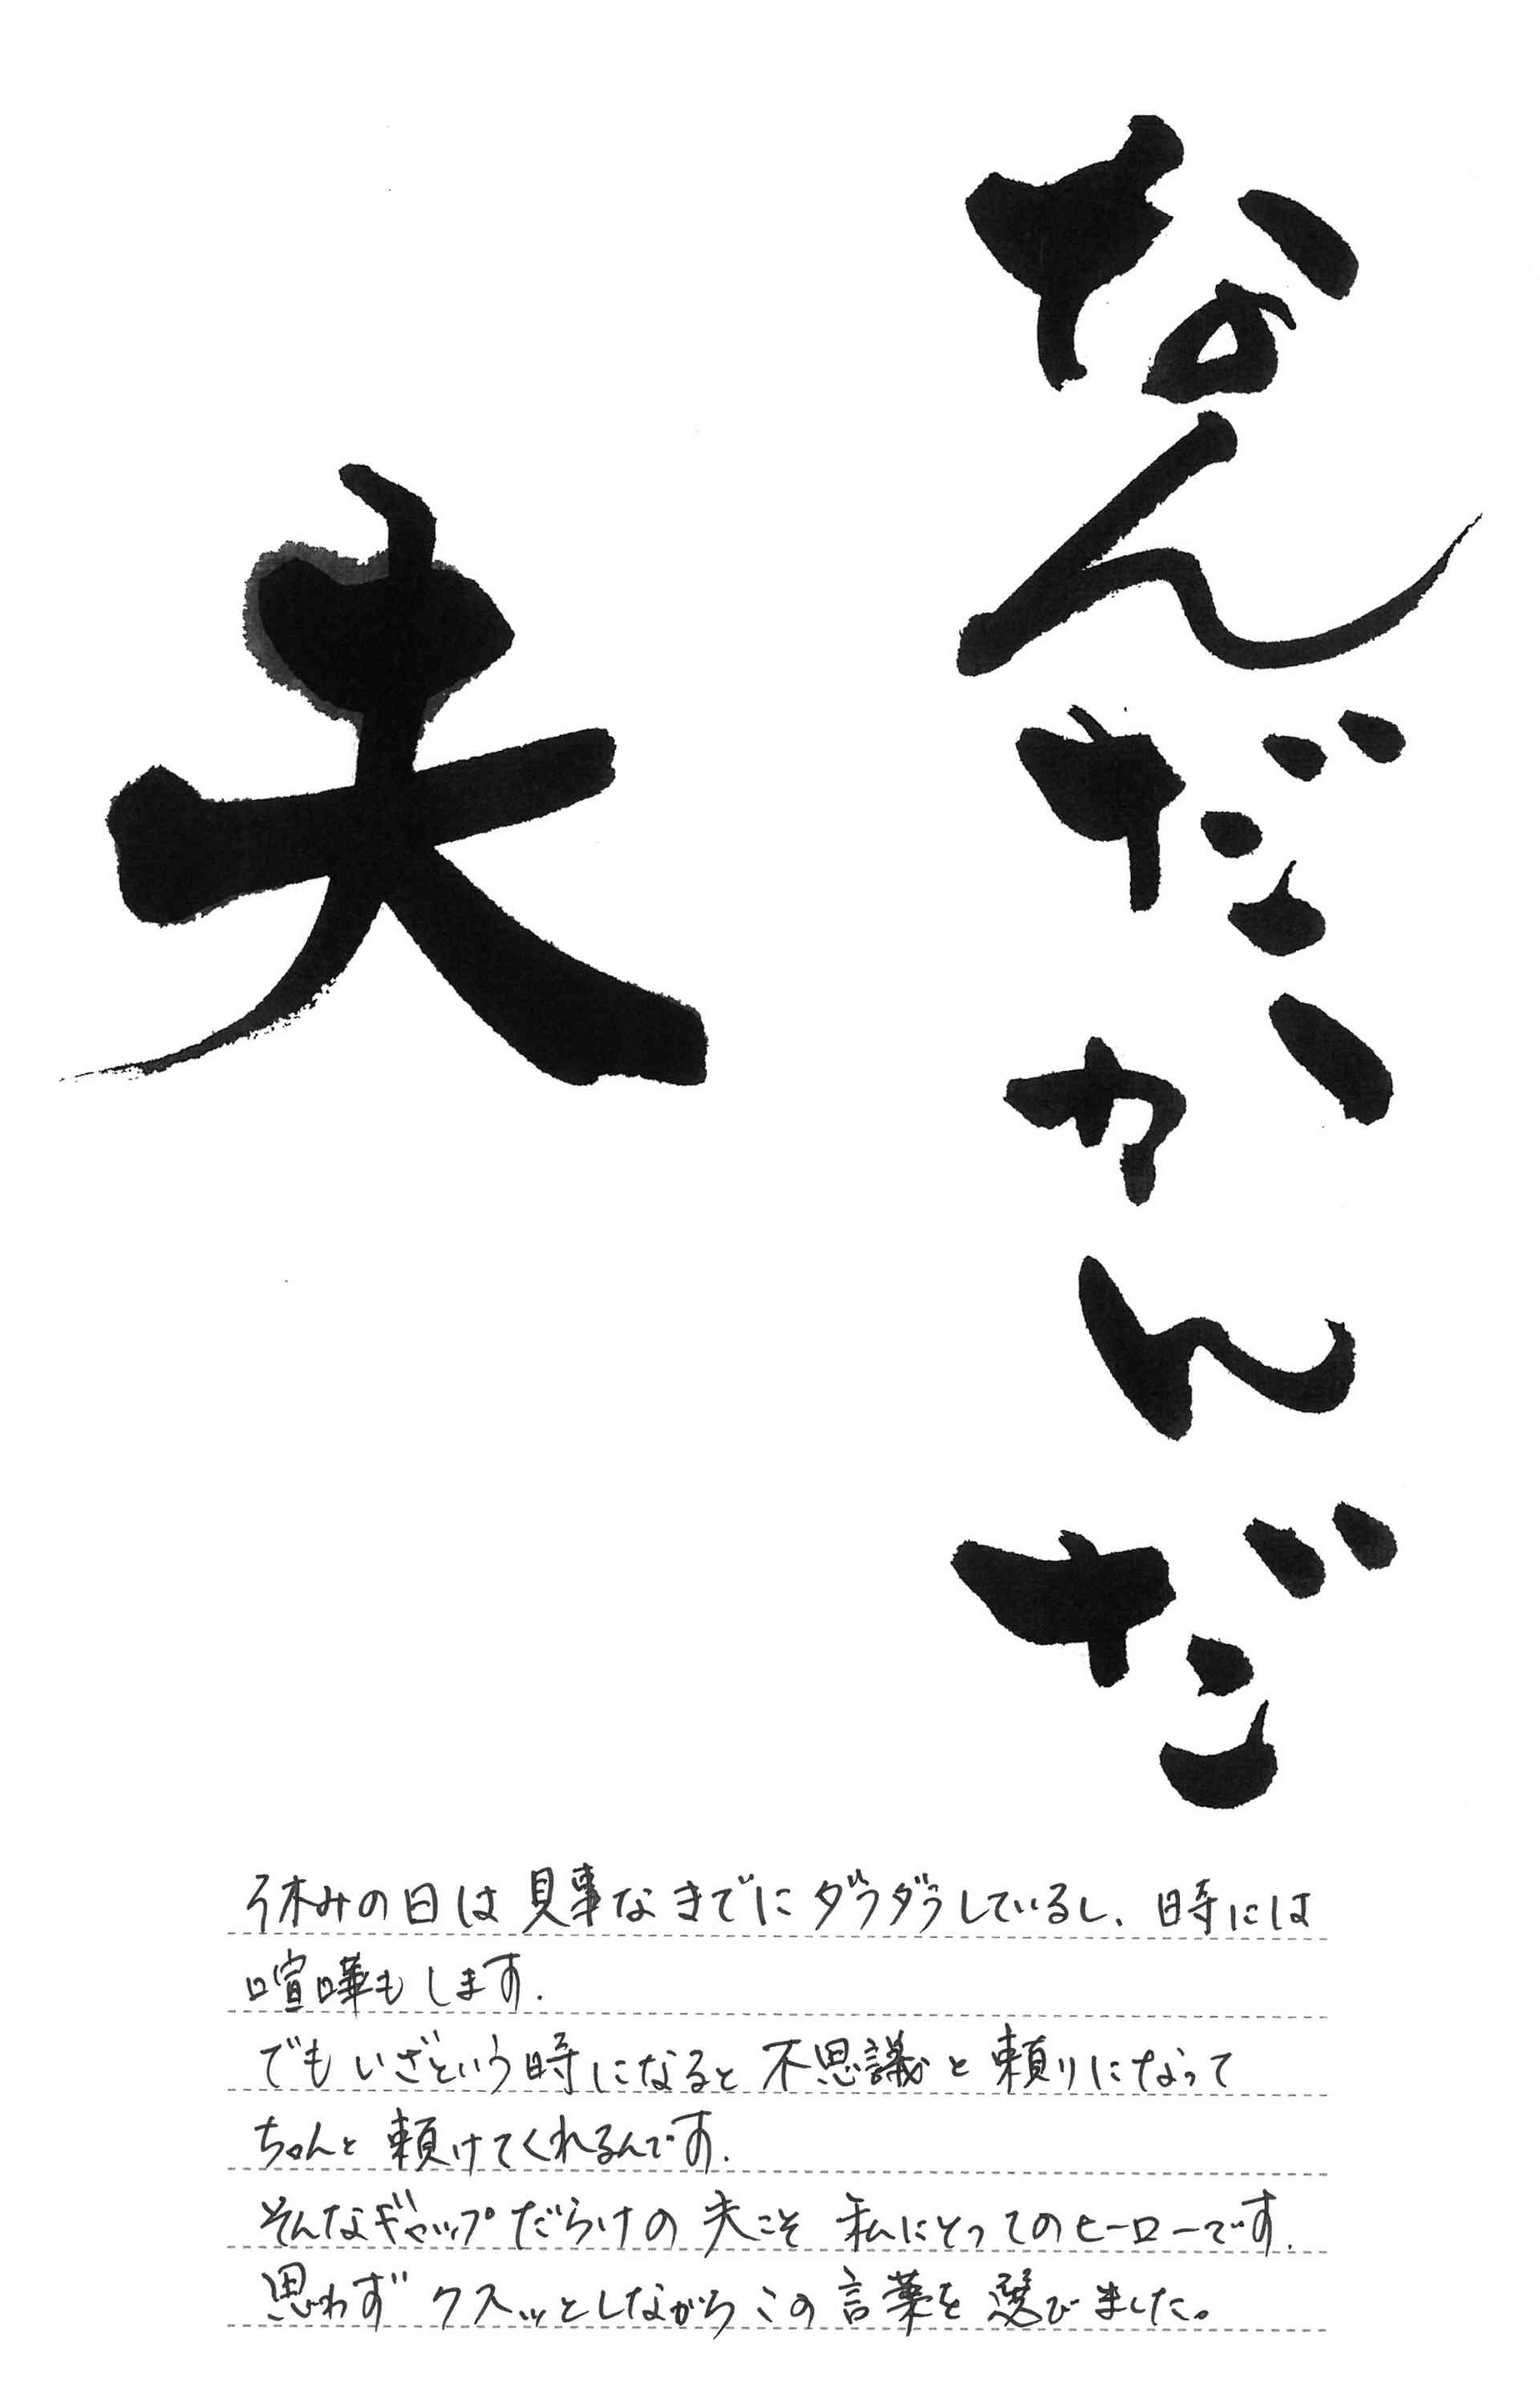 なんだかんだ
夫
休みの日は見事なまでにダラダラしているし、時には
喧嘩もします.
でもいざという時になると不思議と頼りになって
ちゃんと頼けてくれるんです.
そんなギャップだらけの夫こそ私にとってのヒーローです.
思わずクスッとしながらこの言葉を選びました。